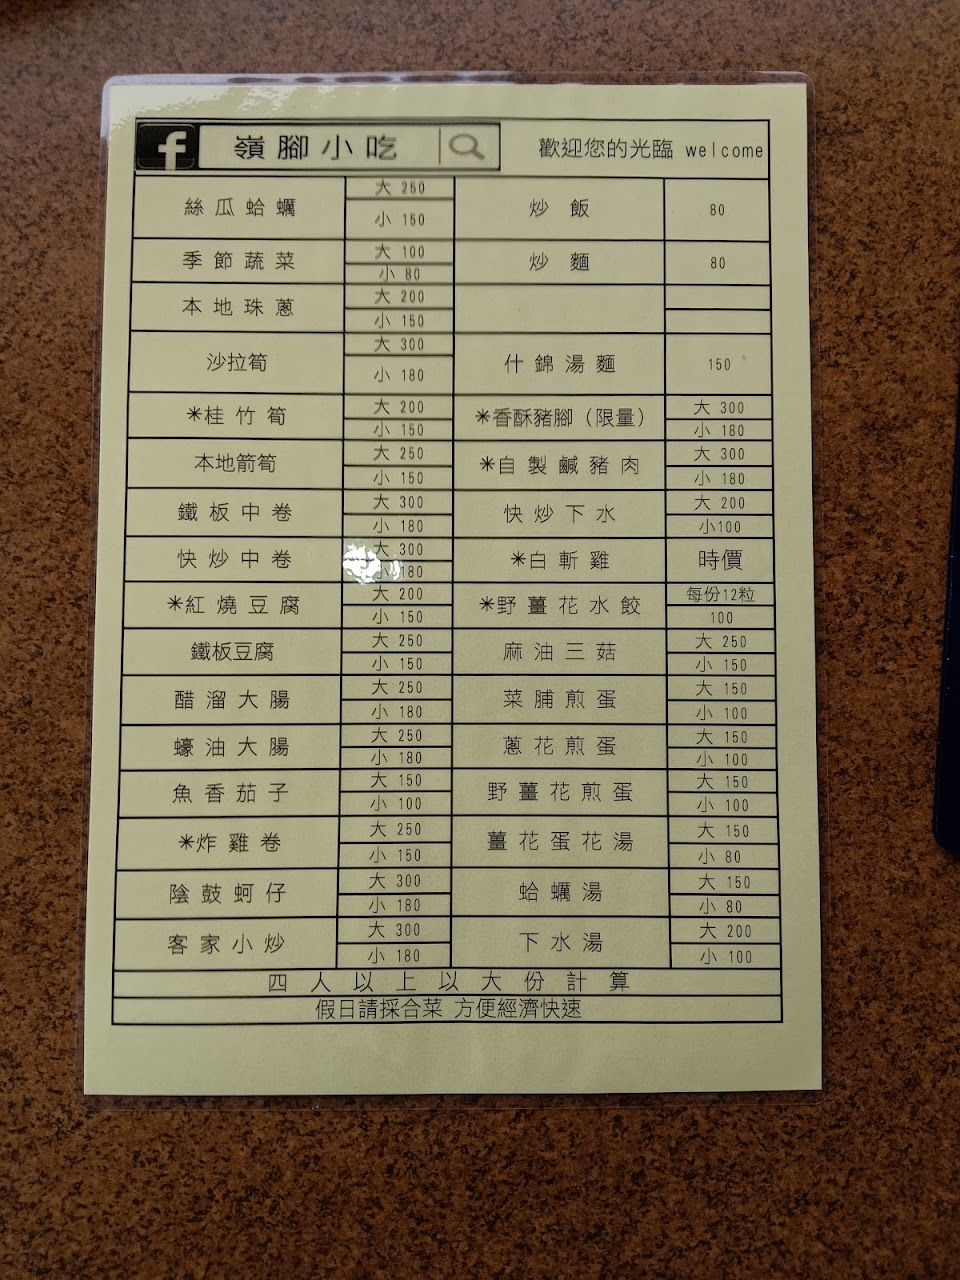 f 嶺腳小吃 歡迎您的光臨 welcome
絲瓜蛤蠣 大 250 小 150 炒飯 80
季節蔬菜 大 100 小 80 炒麵 80
本地珠蔥 大 200 小 150
沙拉筍 大 300 小 180 什錦湯麵 150
*桂竹筍 大 200 小 150 *香酥豬腳(限量) 大 300 小 180
本地箭筍 大 250 小 150 *自製鹹豬肉 大 300 小 180
鐵板中卷 大 300 小 180 快炒下水 大 200 小100
快炒中卷 大 300 小 180 *白斬雞 時價
*紅燒豆腐 大 200 小 150 *野薑花水餃 每份12粒 100
鐵板豆腐 大 250 小 150 麻油三菇 大 250 小 150
醋溜大腸 大 250 小 180 菜脯煎蛋 大 150 小 100
蠔油大腸 大 250 小 180 蔥花煎蛋 大 150 小 100
魚香茄子 大 150 小 100 野薑花煎蛋 大 150 小 100
*炸雞卷 大 250 小 150 薑花蛋花湯 大 150 小 80
陰鼓蚵仔 大 300 小 180 蛤蠣湯 大 150 小 80
客家小炒 大 300 小 180 下水湯 大 200 小 100
四人以上以大份計算
假日請採合菜 方便經濟快速